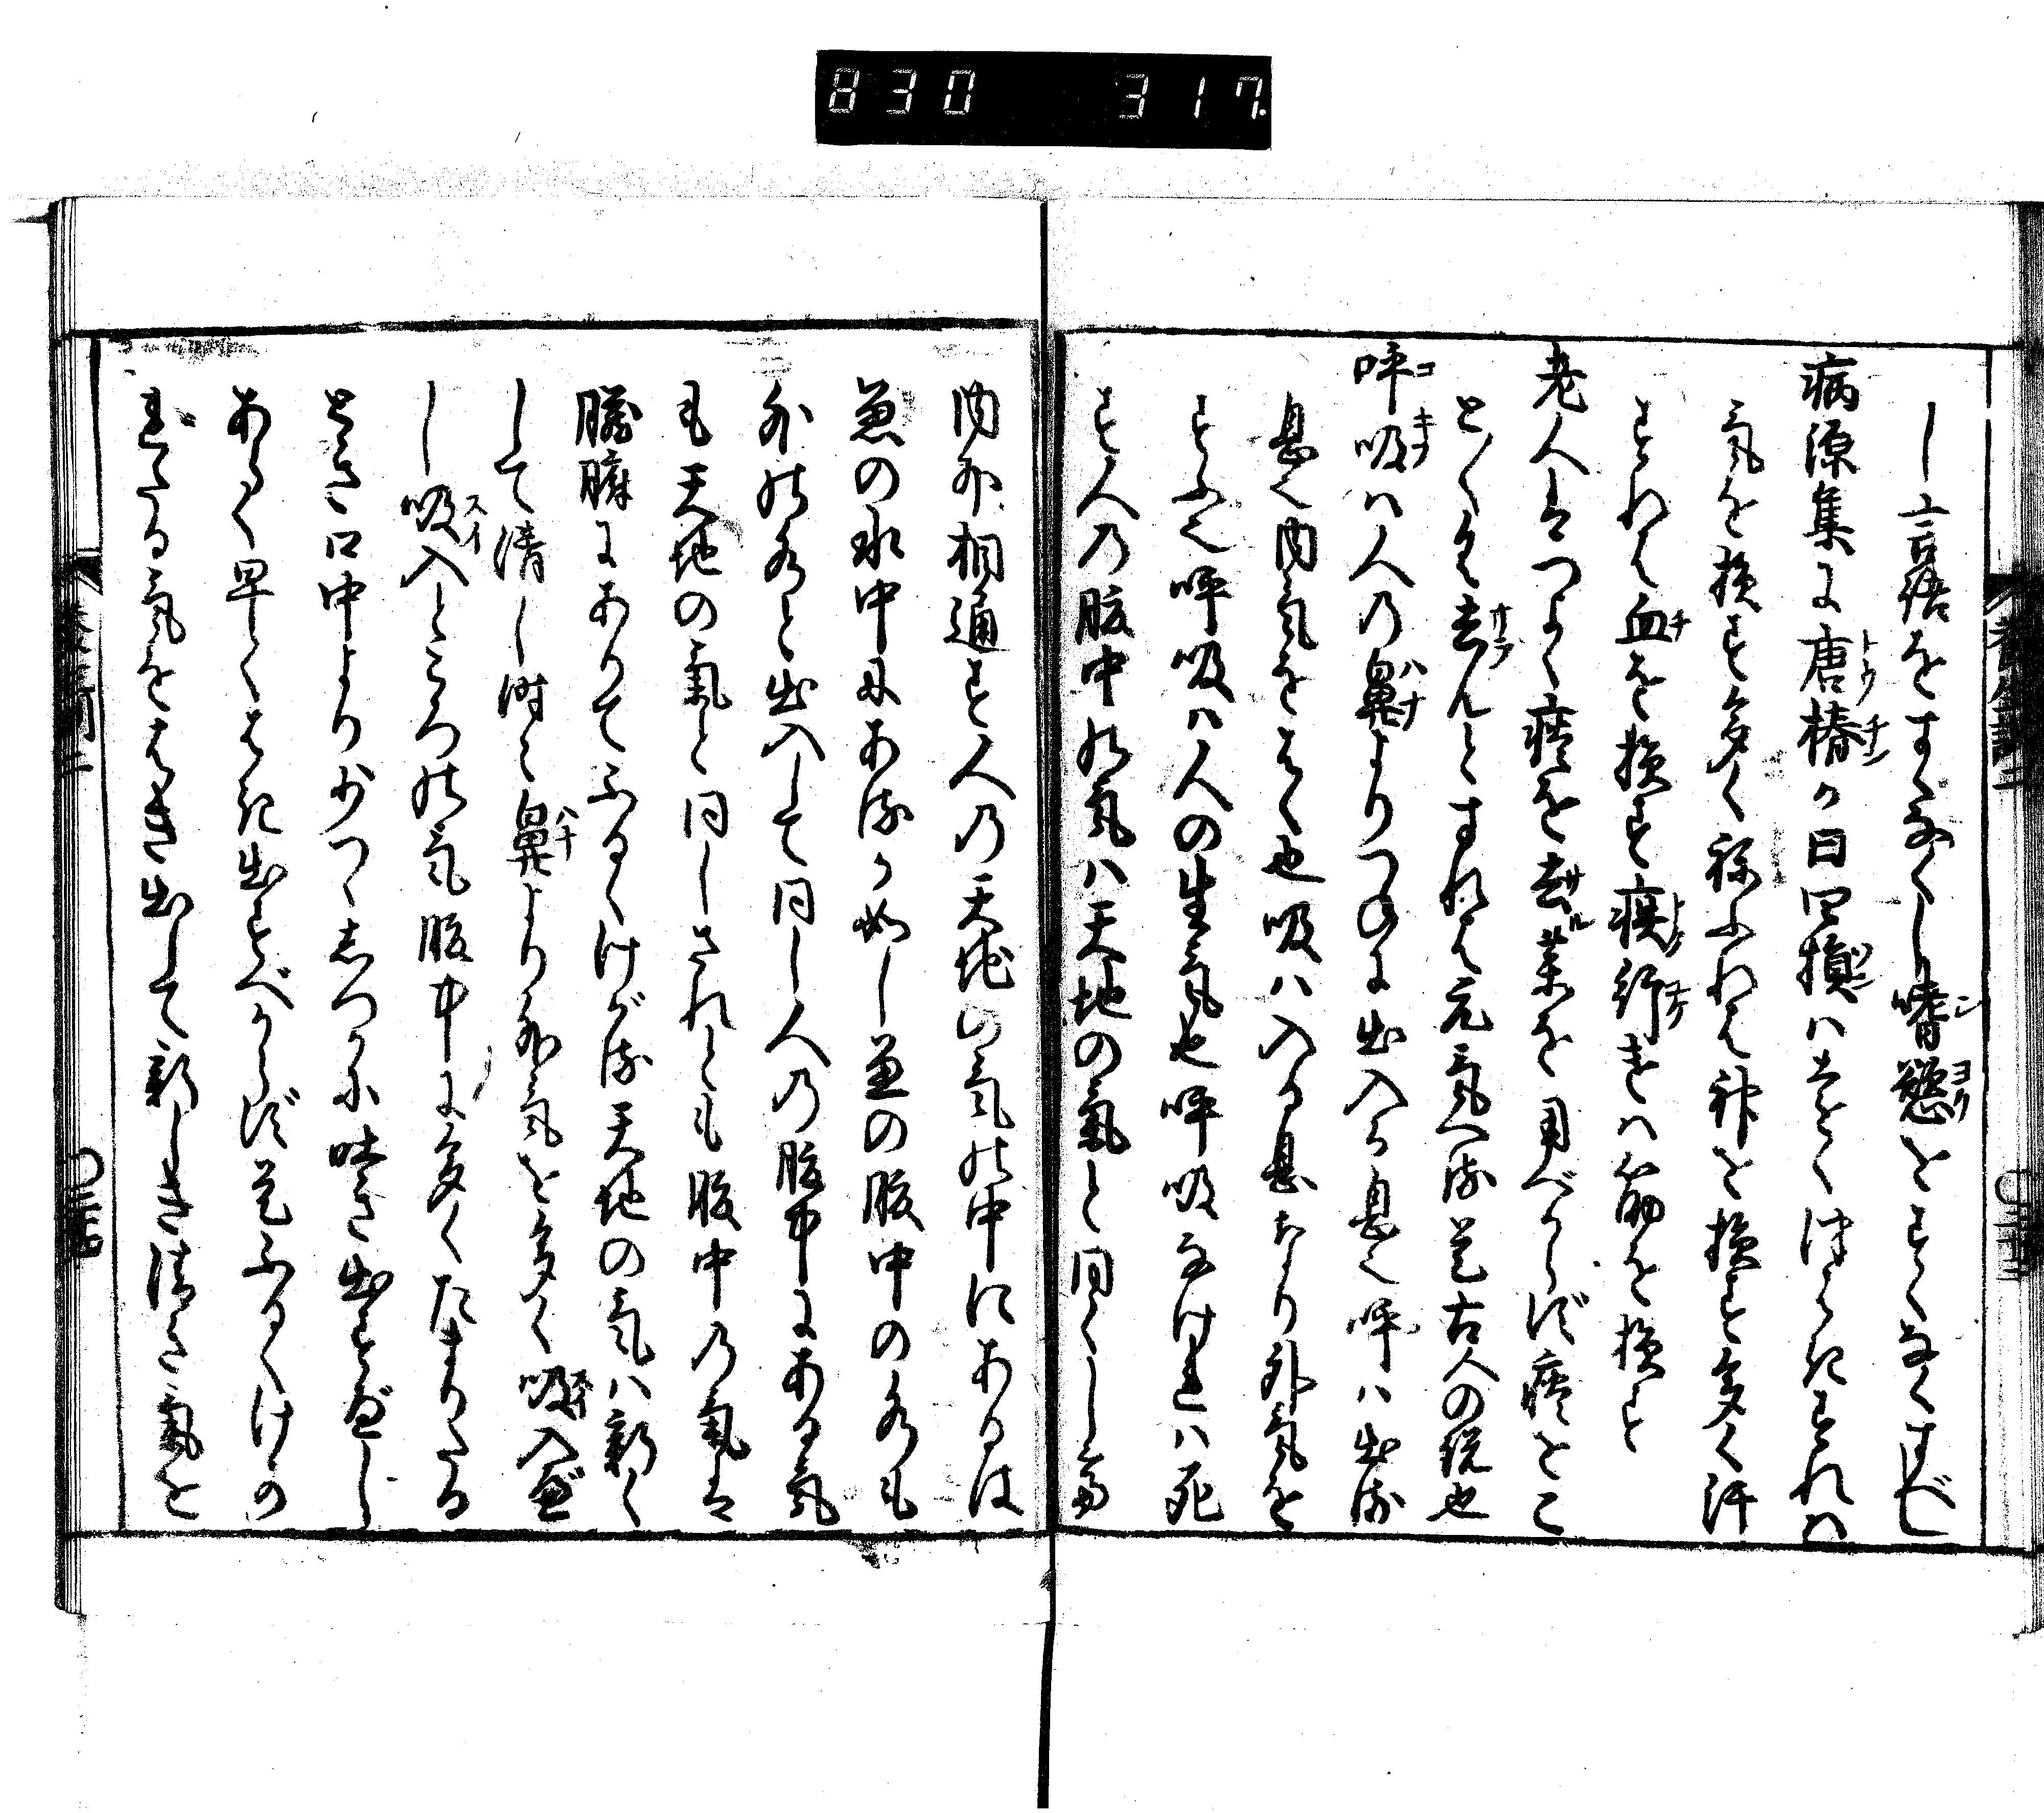 830 317.
し言語をすくなくし嗜慾をすくなくすべし
病源集に唐椿か曰四損ハとをくつはきすれハ
氣を損す多くねふれは神を損す多く汗
すれは血を損す疾行すれハ筋を損す
老人はつよく痰を去薬を用べからず痰をこ
とく〱く去んとすれは元気へる是古人の説也
呼吸ハ人の鼻よりつねに出入る息也呼ハ出る
息也内氣をはく也吸ハ入る息なり外気を
すふ也呼吸ハ人の生氣也呼吸なけれハ死
す人の腹中の気ハ天地の氣と同くして
内外相通す人の天地の氣の中にあるは
魚の水中にあるか如し魚の腹中の水も
外の水と出入して同し人の腹中にある気
も天地の氣と同しされとも腹中の氣は
臓腑にありてふるくけがる天地の気ハ新く
して清し時々鼻より外氣を多く吸入べ
し吸入ところの気腹中に多くたまりたる
とき口中より少つゝしつかに吐き出すべし
あらく早くはき出すべからず是ふるくけか
れたる氣をはき出して新しき清き氣を